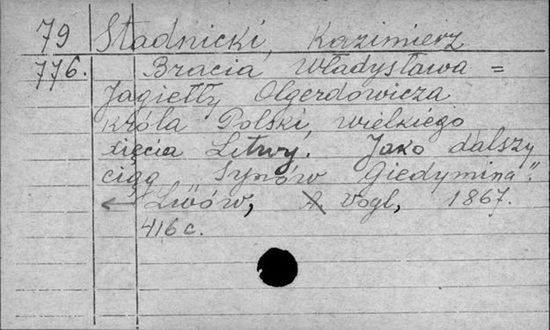 79 Stadnicki, Kazimierz
776. Bracia Władysława =
Jagiełły Olgerdowicza
Króla Polski, wielkiego
xięcia Litwy. Jako dalszy
ciąg "Synów Giedymina".
Lwów, A. Vogl, 1867.
416 c.